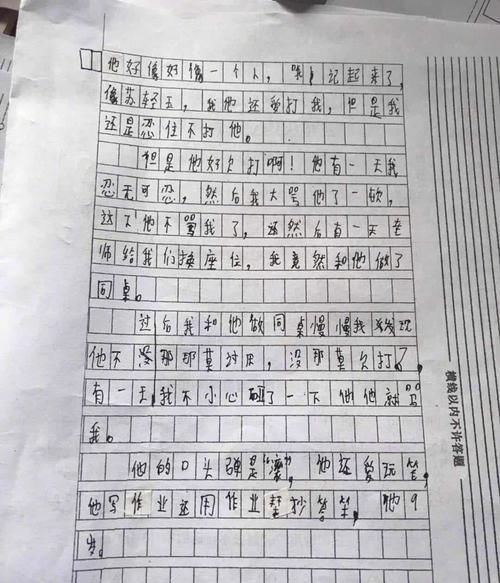 他好像好像一个人，我记起来了，
像苏轻玉，我他还爱打我，但是我
还是忍住不打他。
但是他好欠打啊！他有一天我
忍无可忍，然后我大骂他了一顿，
这下他不骂我了，还然后有一天老
师给我们换座位，我竟然和他做了
同桌。
过后我和他做同桌慢慢我发现
他不没那那莫讨厌，没那莫欠打了，
有一天我不小心碰了一下他他就骂
我。
他的口头弹是“滚”，他还爱玩笔，
他写作业还用作业帮抄答案，他9
岁。
横线以内不许答题